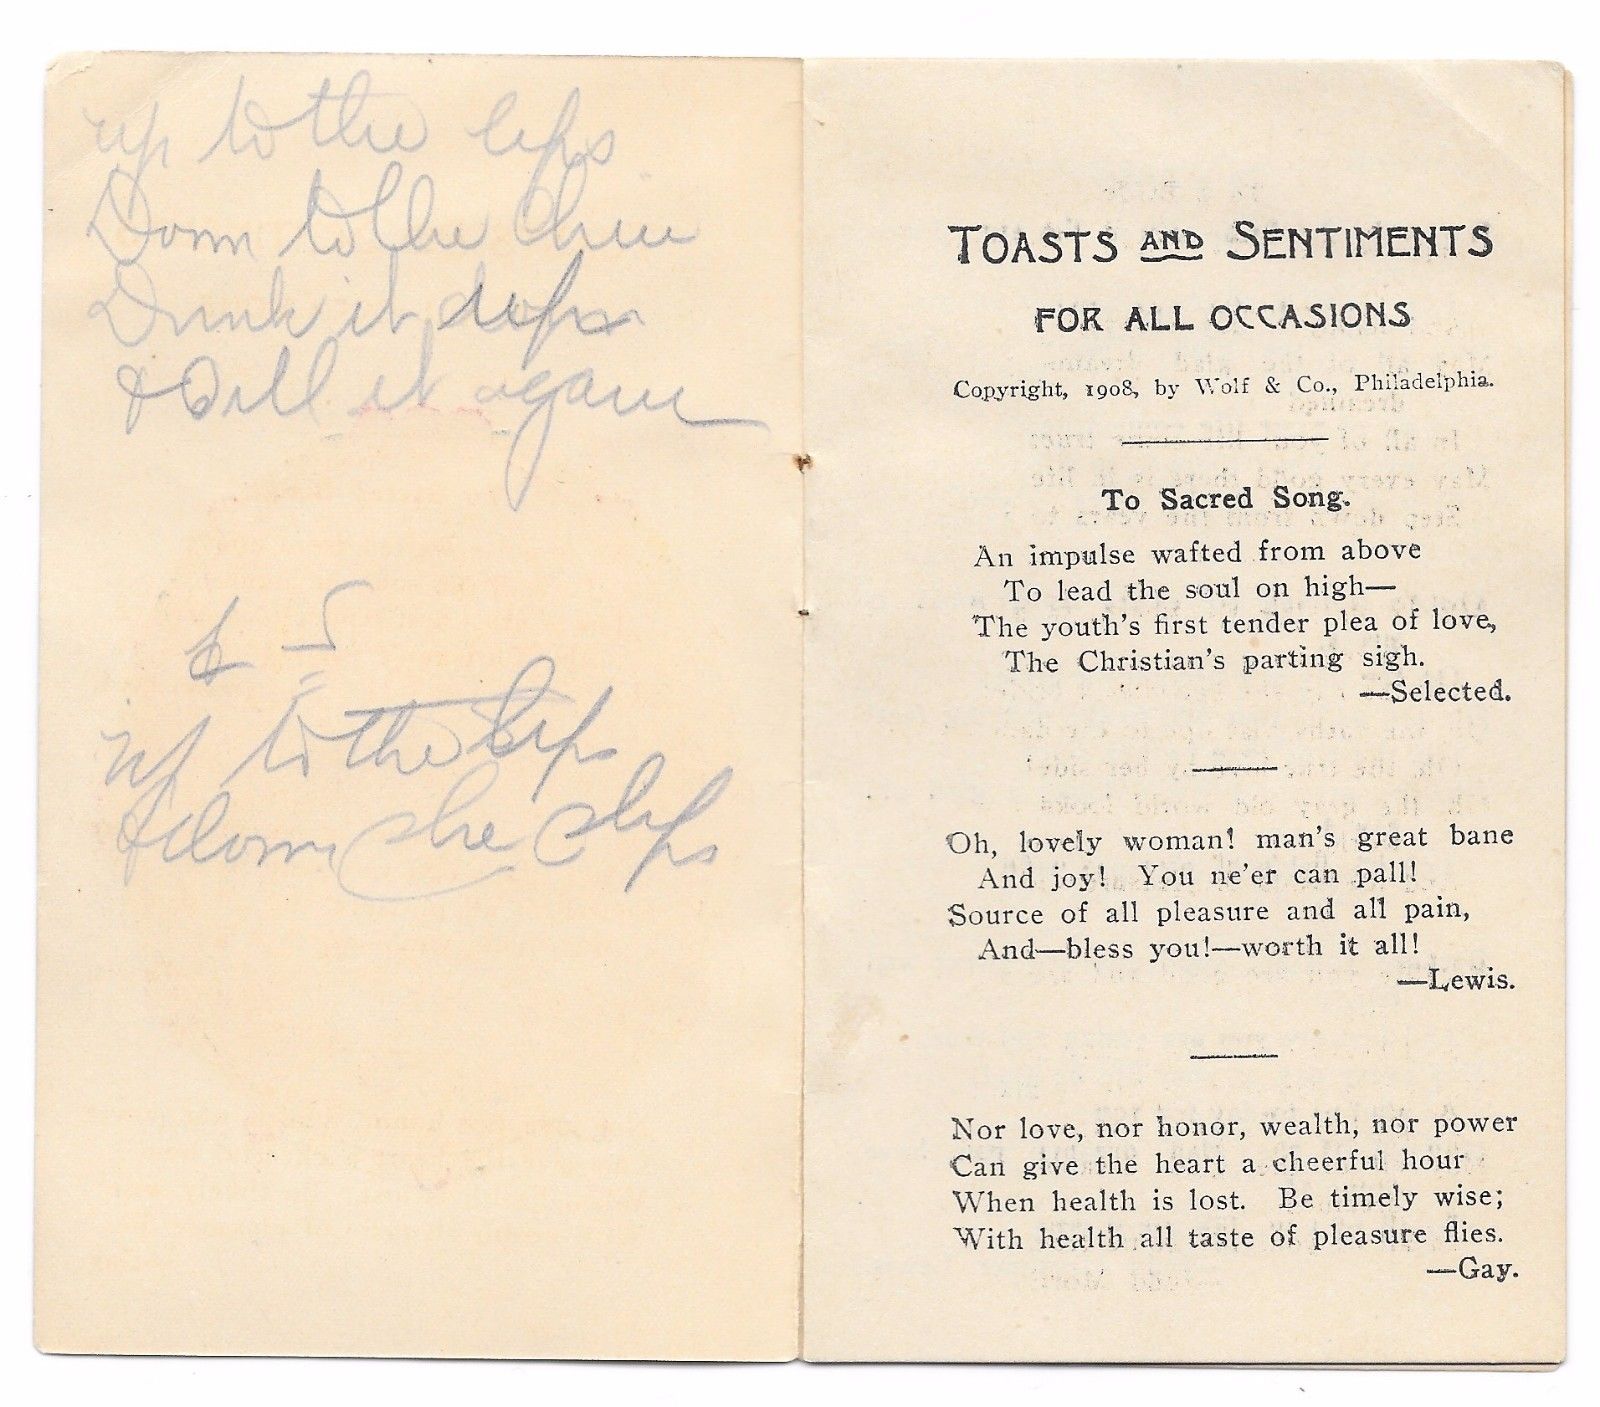 up to the lips
Down to the Chin
Drink it up
& Fill it again
up to the lips
& down she slips
TOASTS AND SENTIMENTS
FOR ALL OCCASIONS
Copyright, 1908, by Wolf & Co., Philadelphia.
To Sacred Song.
An impulse wafted from above
To lead the soul on high—
The youth's first tender plea of love,
The Christian's parting sigh.
—Selected.
Oh, lovely woman! man's great bane
And joy! You ne'er can pall!
Source of all pleasure and all pain,
And—bless you!—worth it all!
—Lewis.
Nor love, nor honor, wealth, nor power
Can give the heart a cheerful hour
When health is lost. Be timely wise;
With health all taste of pleasure flies.
—Gay.